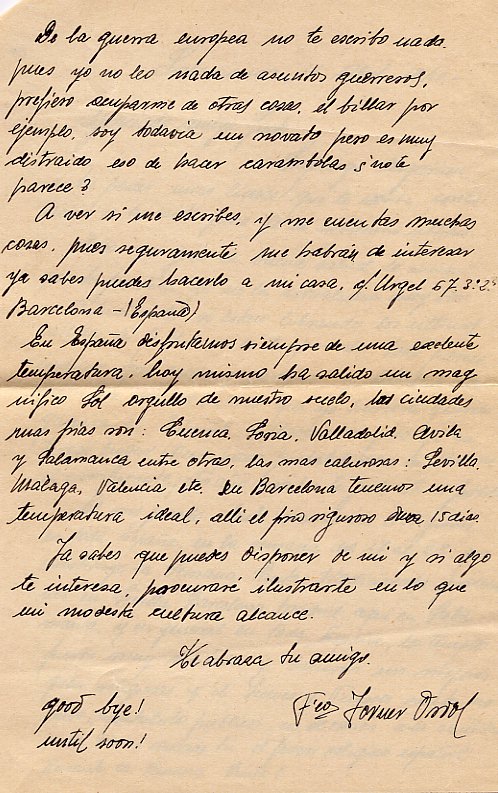 De la guerra europea no te escribo nada.
pues yo no leo nada de asuntos guerreros,
prefiero ocuparme de otras cosas, el billar por
ejemplo, soy todavia un novato pero es muy
distraido eso de hacer carambolas ¿no te
parece?
A ver si me escribes, y me cuentas muchas
cosas, pues seguramente me habrán de interesar
ya sabes puedes hacerlo a mi casa, c/. Urgel 57. 3º 2ª
Barcelona - (España)
En España disfrutamos siempre de una exelente
temperatura, hoy mismo ha salido un mag
nifico Sol orgullo de nuestro suelo, las ciudades
mas frias son: Cuenca, Soria, Valladolid, Avila
y Salamanca entre otras, las mas calurosas: Sevilla,
Malaga, Valencia etc. En Barcelona tenemos una
temperatura ideal, alli el frio riguroso dura 15 dias.
Ya sabes que puedes disponer de mi y si algo
te interesa, procuraré ilustrarte en lo que
mi modesta cultura alcance.
Te abraza tu amigo.
good bye!
until soon!
Fco